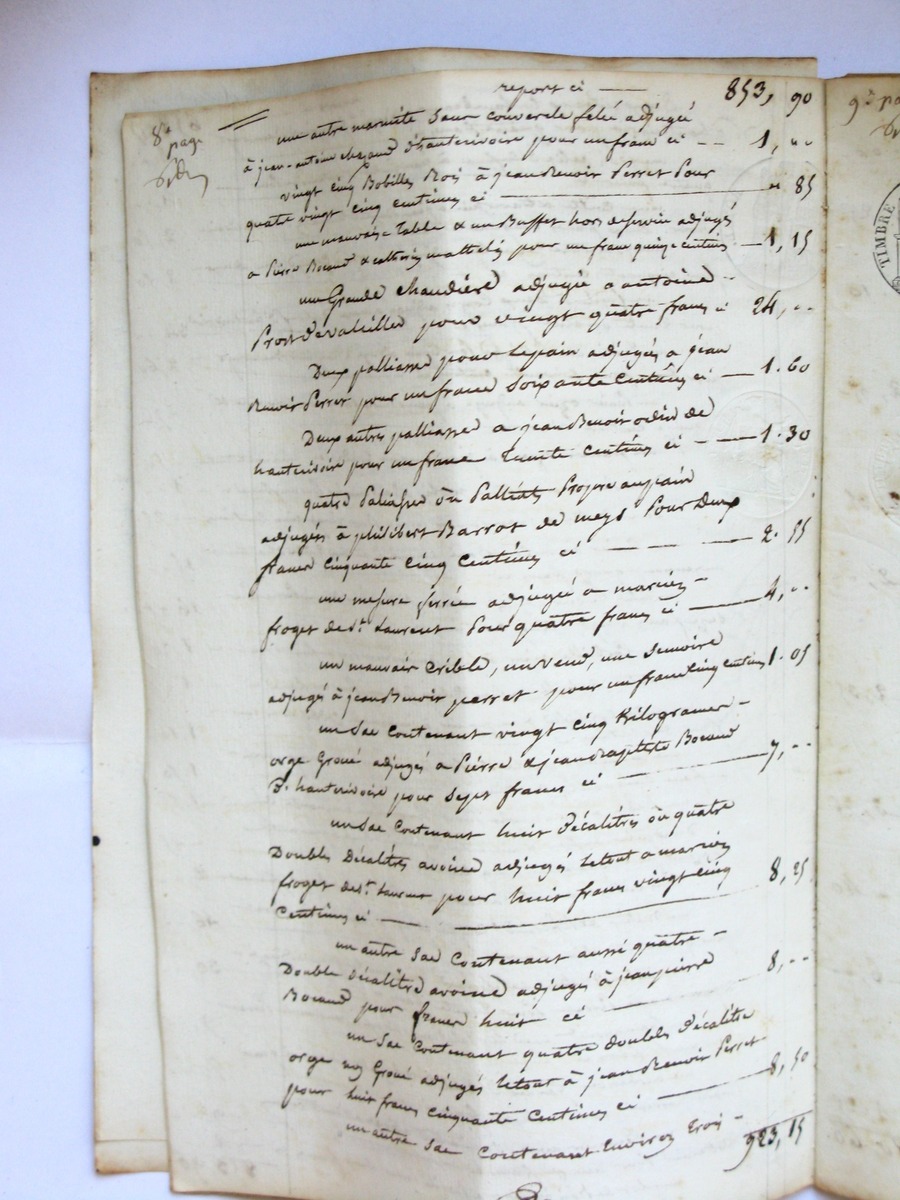 report ci — 853, 90
8e page
une autre marmite sans couvercle felée adjugée
à jean-antoine d'hauterivoire pour un franc ci — 1, "
vingt cinq Bobilles Bois à jean Benoir Perret Pour
quatre vingt cinq centimes ci — " 85
une mauvaise table & un Buffet hors de service adjugés
a Pierre Bocaud & catherin pour un franc quinze centimes — 1, 15
une Grande chaudière adjugée a antoine
Prost pour vingt quatre francs ci 24, "
Deux palliasses pour le pain adjugés a jean
Benoir Perret pour un franc soixante Centimes ci — 1. 60
Deux autres palliasses a jean Benoir de
hauterivoire pour un franc trente centimes ci — 1. 30
quatre Paliasses ou Palliats Propre au pain
adjugés à philibert Barrot de meys Pour Deux
francs Cinquante cinq Centimes ci — 2. 55
une mesure ferrée adjugée a
froget de St. Laurent Pour quatre francs ci — 4, "
un mauvais crible, un , une
adjugés à jean Benoir perret pour un franc cinq centimes 1. 05
un Sac Contenant vingt cinq Kilogrames
orge Groué adjugés a Pierre & jean Baptiste Bocaud
D. hauterivoire pour Sept francs ci — 7, "
un Sac Contenant huit Décalitres ou quatre
Doubles Décalitres avoine adjugés le tout a
froget de St. Laurent pour huit francs vingt cinq
Centimes ci — 8, 25
un autre Sac Contenant aussi quatre
Double Décalitre avoine adjugés à jean pierre
Bocaud pour francs huit ci — 8, "
un Sac Contenant quatre Doubles Décalitre
orge Groué adjugés le tout à jean Benoir Perret
pour huit francs cinquante Centimes ci — 8, 50
un autre Sac Contenant Environ trois
923, 15
9e pa
TIMBRE